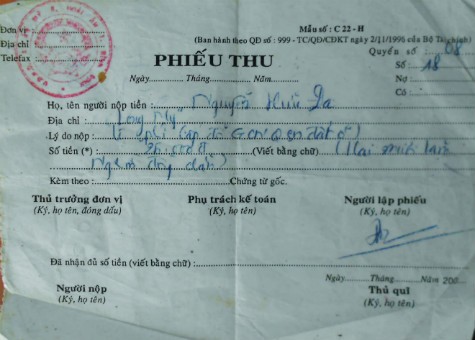 Đơn vị
Địa chỉ
Telefax
Mẫu số : C 22 - H
(Ban hành theo QĐ số : 999 - TC/QĐ/CĐKT ngày 2/11/1996 của Bộ Tài chính)
Quyển số 08
Số : 18
PHIẾU THU
Nợ :
Ngày.......... Tháng.......... Năm..........
Có :
Họ, tên người nộp tiền : Nguyễn Hữu Da
Địa chỉ : Long Mỹ
Lý do nộp : lệ phí cấp đổi
Số tiền (*) : (Viết bằng chữ) (Hai mươi lăm
Nghìn đồng chẵn)
Kèm theo : Chứng từ gốc.
Thủ trưởng đơn vị Phụ trách kế toán Người lập phiếu
(Ký, họ tên, đóng dấu) (Ký, họ tên) (Ký, họ tên)
Đã nhận đủ số tiền (viết bằng chữ) :
Ngày.......... Tháng.......... Năm 200
Người nộp Thủ quĩ
(Ký, họ tên) (Ký, họ tên)